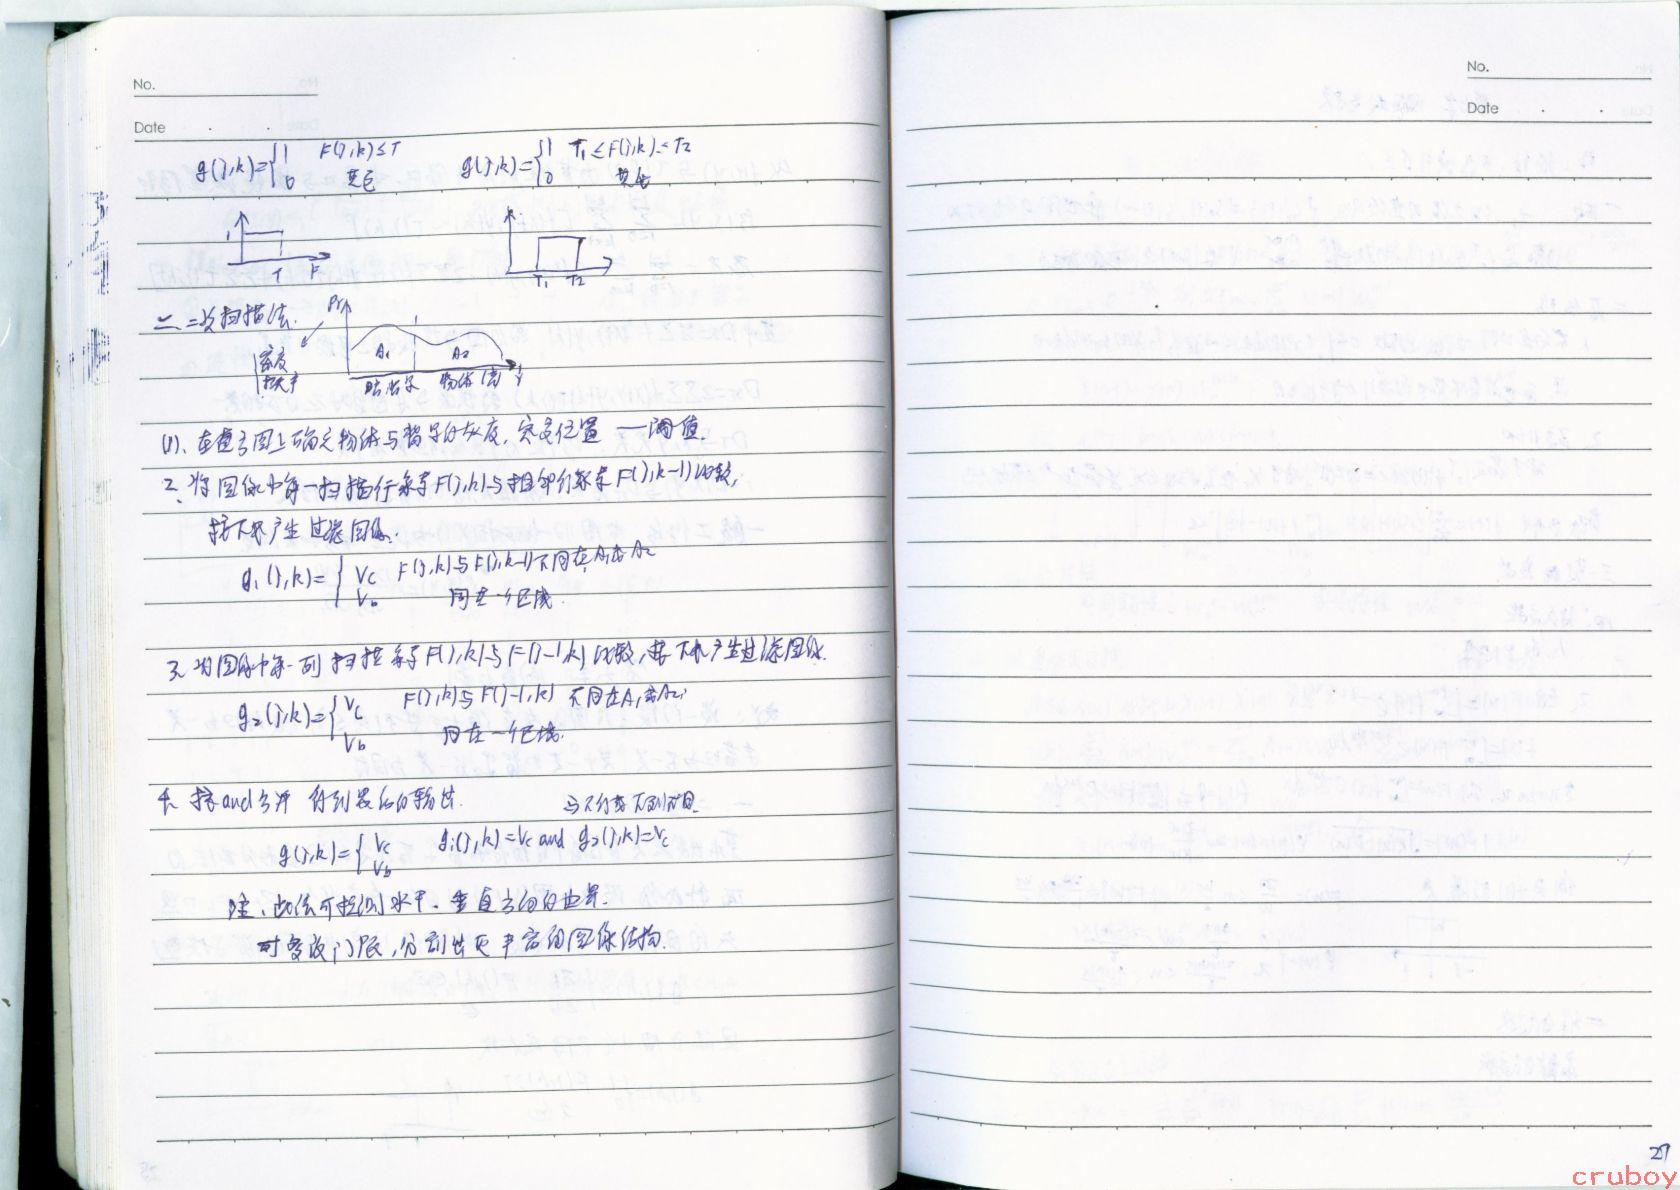 No.
Date
g(j,k)={1 F(j,k)≤T
0 其它
g(j,k)={1 T1≤F(j,k)≤T2
0 其它
1
T F
T1 T2
二、二次扫描法.
Pr
密度
概率
A1 A2
暗背景 物体(亮) j
(1). 在直方图上确定物体与背景的灰度, 位置 —阈值.
2、将图像中每一扫描行像素F(j,k)与相邻行像素F(j,k-1)比较,
按下式产生过渡图像.
g1(j,k)={Vc F(j,k)与F(j,k-1)不同在A1或A2
Vb 同在一个区域.
3. 将图像中每一列扫描像素F(j,k)与F(j-1,k)比较, 按下式产生过渡图像.
g2(j,k)={Vc F(j,k)与F(j-1,k)不同在A1或A2;
Vb 同在一个区域.
4. 按and合并 得到最后的输出.
g(j,k)={Vc g1(j,k)=Vc and g2(j,k)=Vc
Vb
注: 此法可检测水平、垂直方向的边界.
对变成门限, 分割出更丰富的图像结构.
No.
Date
27
cruboy